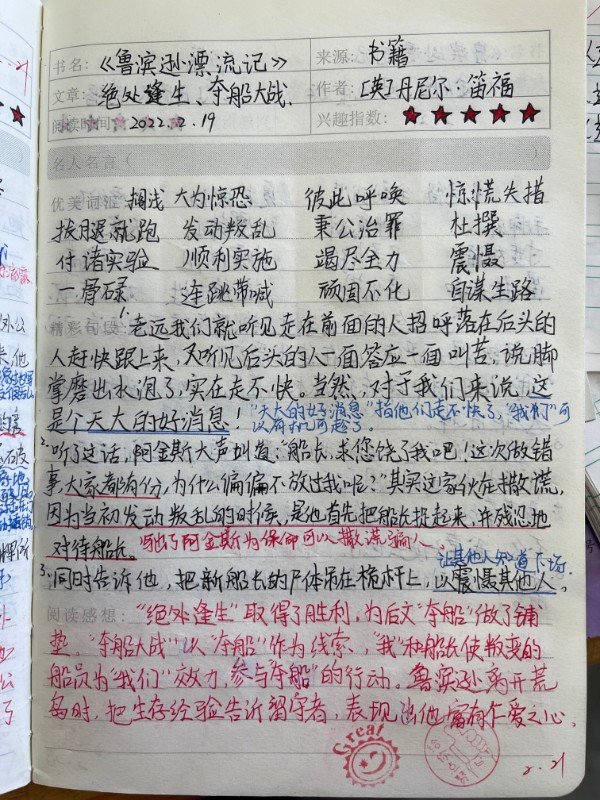 书名:《鲁滨逊漂流记》 来源: 书籍
文章: 绝处逢生、夺船大战. 作者: [英]丹尼尔·笛福
阅读时间: 2022.2.19 兴趣指数: ★★★★★
名人名言( )
优美词汇 搁浅 大为惊恐 彼此呼唤 惊慌失措
拔腿就跑 发动叛乱 秉公治罪 杜撰
付诸实验 顺利实施 竭尽全力 震慑
一骨碌 连跳带喊 顽固不化 自谋生路
精彩句段 1.老远我们就听见走在前面的人招呼落在后头的
人赶快跟上来,又听见后头的人一面答应一面叫苦,说脚
掌磨出水泡了,实在走不快。当然,对于我们来说,这
是个天大的好消息! "天大的好消息"指他们走不快了,"我们"可
以有机可趁了。
2.听了这话,阿金斯大声叫道:"船长,求您饶了我吧!这次做错
事大家都有份,为什么偏偏不放过我呢?"其实这家伙在撒谎,
因为当初发动叛乱的时候,是他首先把船长捉起来,并残忍地
对待船长。 写出了阿金斯为保命可以撒谎骗人。
让其他人知道下场.
3.同时告诉他,把新船长的尸体吊在桅杆上,以震慑其他人。
阅读感想: "绝处逢生"取得了胜利,为后文"夺船"做了铺
垫。"夺船大战"以"夺船"作为线索,"我"和船长使叛变的
船员为"我们"效力,参与"夺船"的行动。鲁滨逊离开荒
岛时,把生存经验告诉留守者,表现出他富有仁爱之心。
Great
2.21